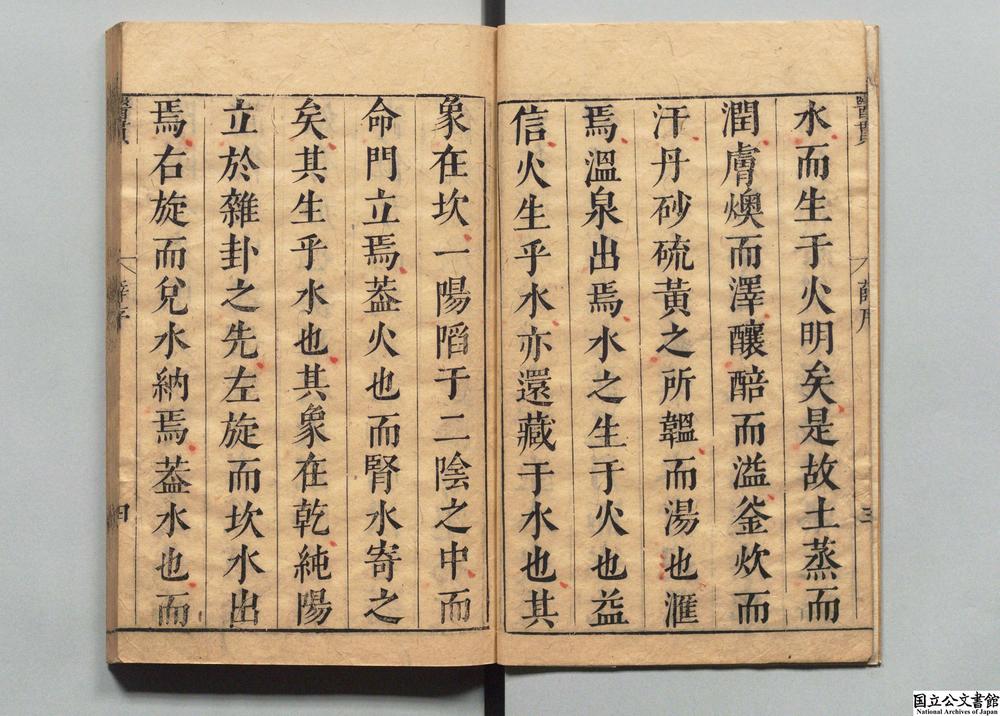 水而生于火明矣是故土蒸而
潤膚燠而澤釀醅而溢釜炊而
汗丹砂硫黃之所韞而湯也滙
焉溫泉出焉水之生于火也益
信火生乎水亦還藏于水也其
象在坎一陽陷于二陰之中而
命門立焉葢火也而腎水寄之
矣其生乎水也其象在乾純陽
立於雜卦之先左旋而坎水出
焉右旋而兌水納焉葢水也而
醫貫
薛序
三
四
国立公文書館
National Archives of Japan